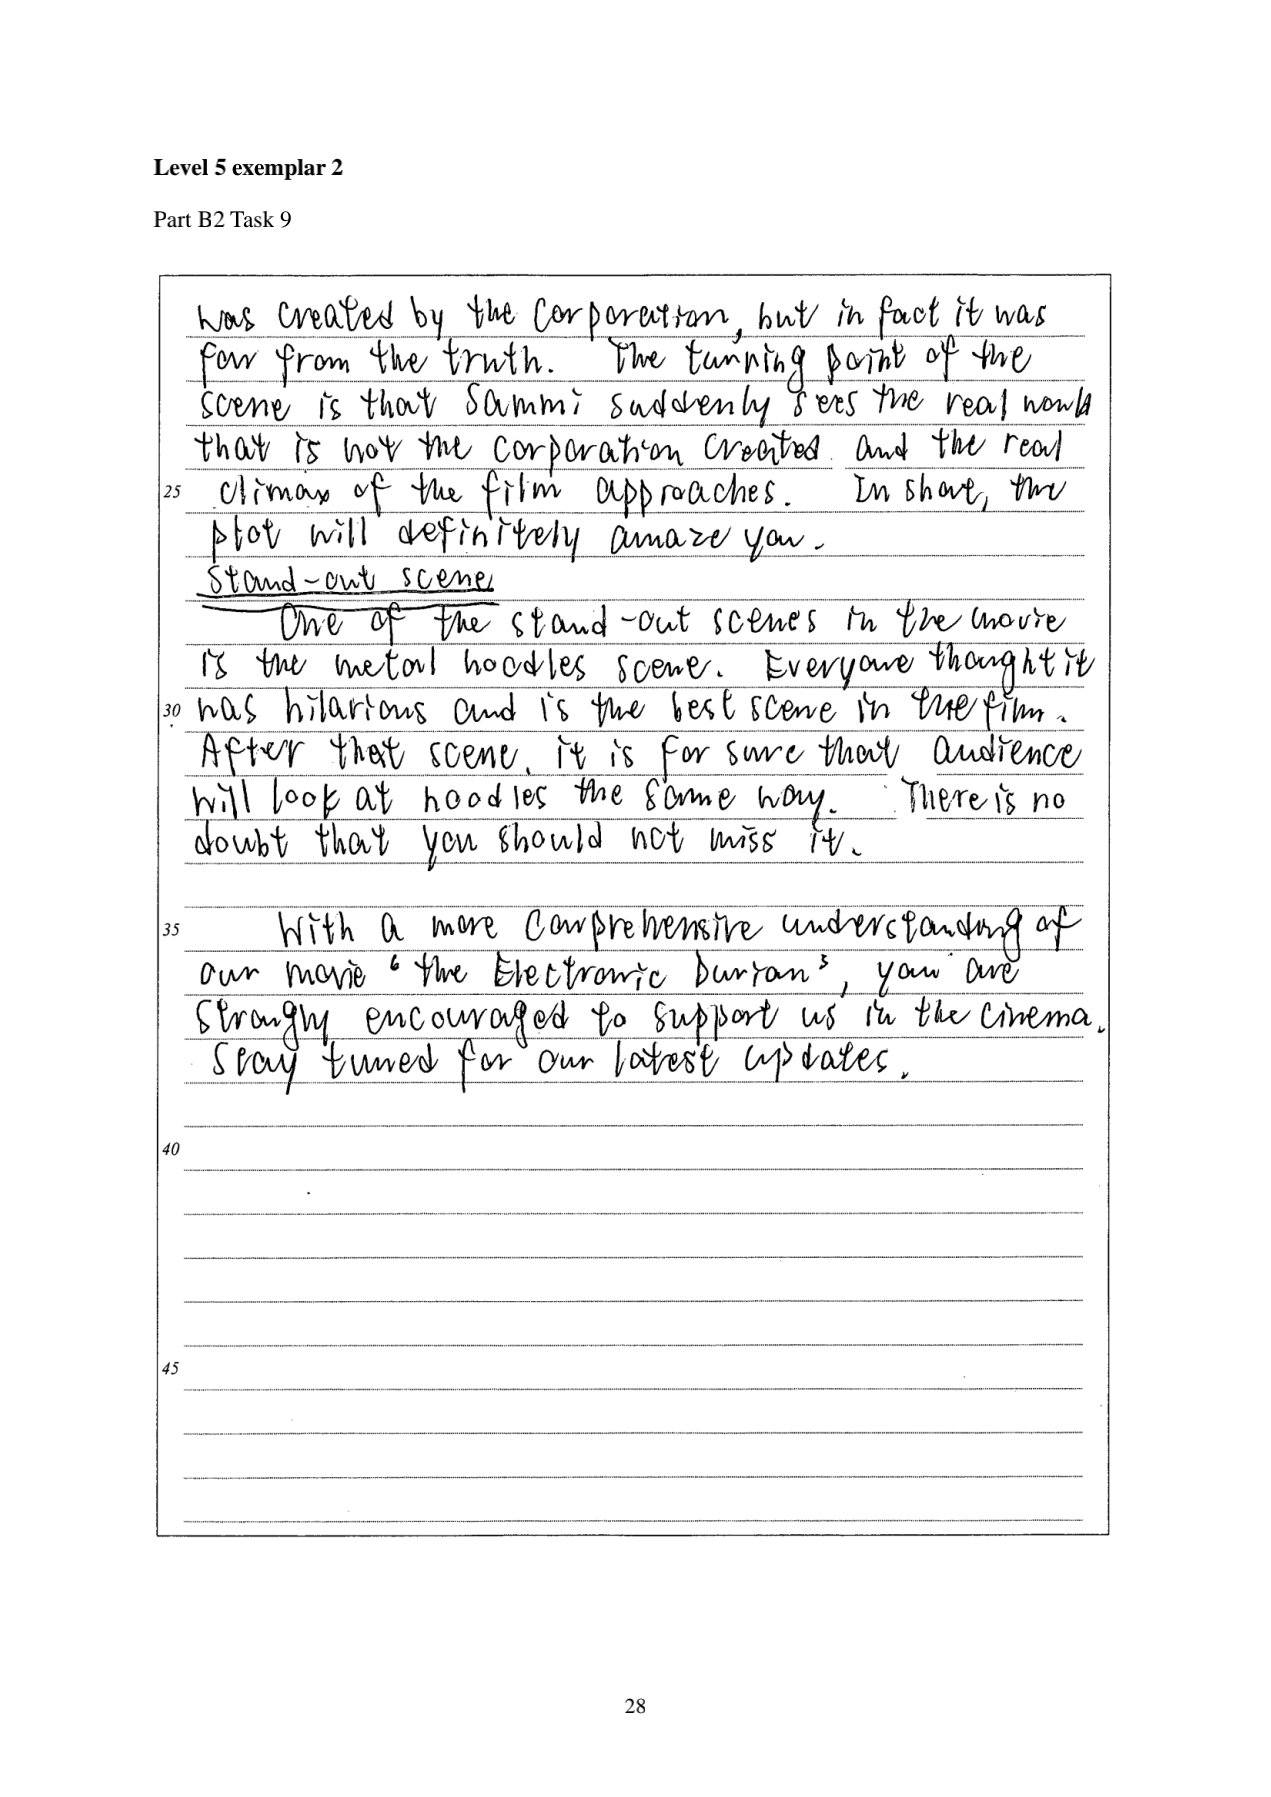 Level 5 exemplar 2
Part B2 Task 9
was created by the corporation, but in fact it was
far from the truth. The turning point of the
scene is that Sammi suddenly sees the real world
that is not the corporation created and the real
25 climax of the film approaches. In short, the
plot will definitely amaze you.
Stand-out scene
One of the stand-out scenes in the movie
is the metal noodles scene. Everyone thought it
30 was hilarious and is the best scene in the film.
After that scene, it is for sure that audience
will look at noodles the same way. There is no
doubt that you should not miss it.
35 With a more comprehensive understanding of
our movie ‘the Electronic Durian’, you are
strongly encouraged to support us in the cinema.
Stay tuned for our latest updates.
40
45
28